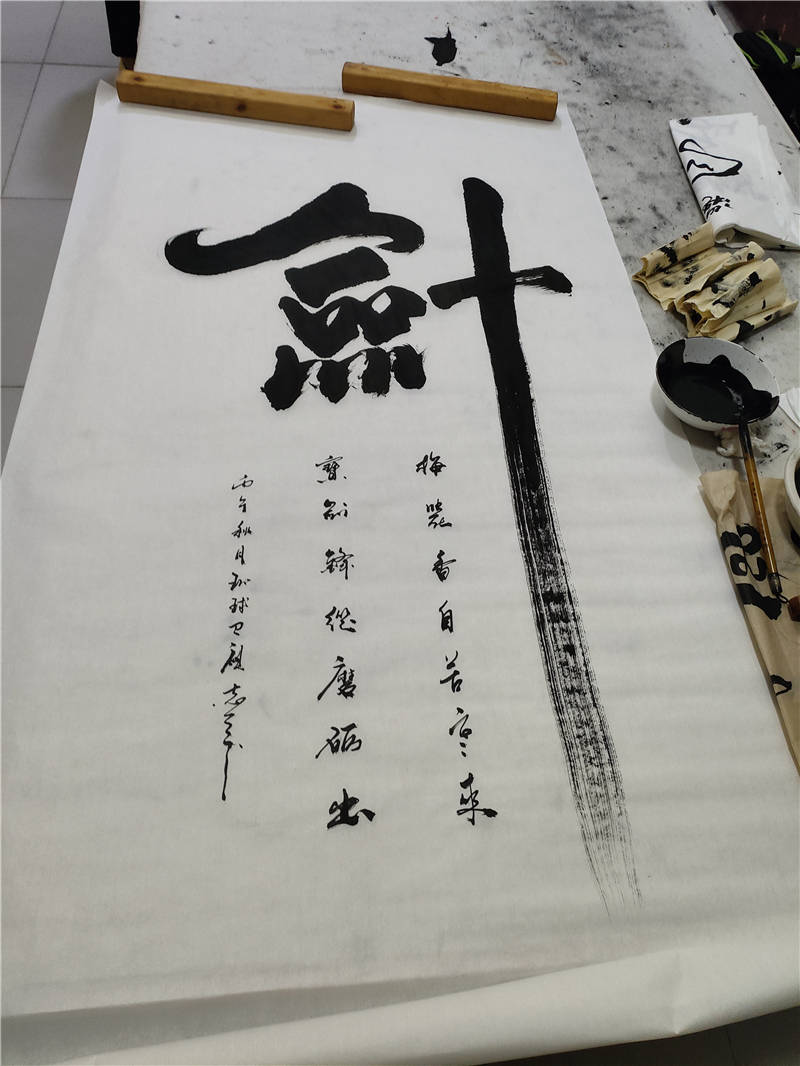 劍
梅花香自苦寒來
寶劍鋒從磨礪出
丙午秋月